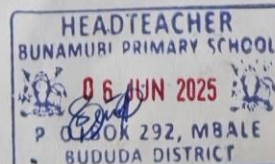 HEADTEACHER
BUNAMUBI PRIMARY SCHOOL
06 JUN 2025
P O BOX 292, MBALE
BUDUDA DISTRICT